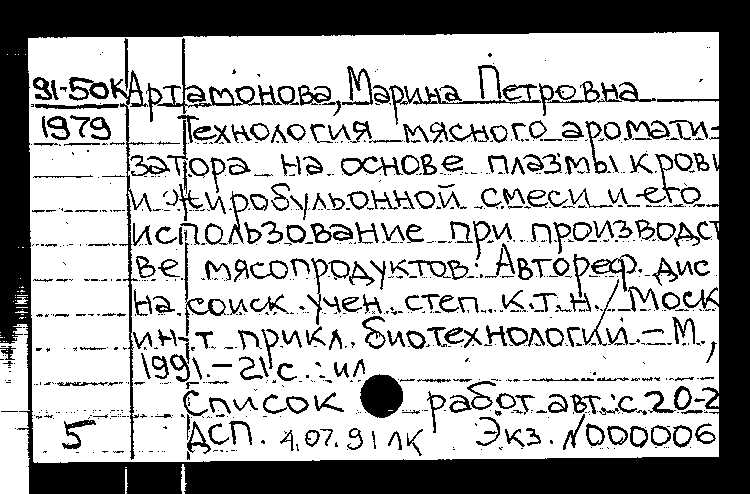 91-50К Артамонова, Марина Петровна
1979 Технология мясного аромати-
затора на основе плазмы крови
и жиробульонной смеси и его
использование при производст
ве мясопродуктов: Автореф. дис
на соиск. учен. степ к.т.н. / Моск
ин-т прикл. биотехнологии. – М.,
1991. – 21 с. : ил
Список работ авт.: с. 20-2
5 ДСП. 4.07.91 ЛК Экз. N000006